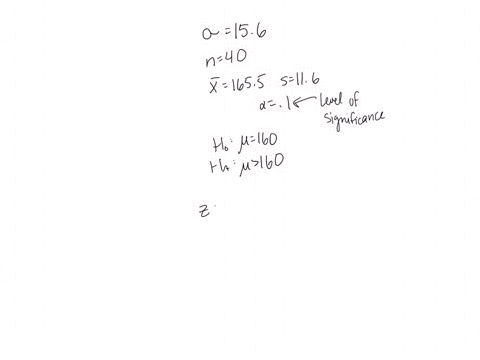 σ=15.6
n=40
x̄=165.5 s=11.6
α=.1 ← level of
significance
H₀: μ=160
Hₐ: μ>160
z